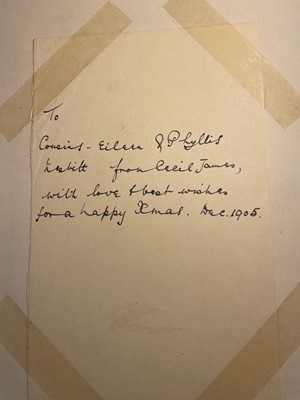 To
Cousins - Eileen & Phyllis
Nesbitt from Cecil James,
with love & best wishes
for a happy Xmas. Dec. 1905.